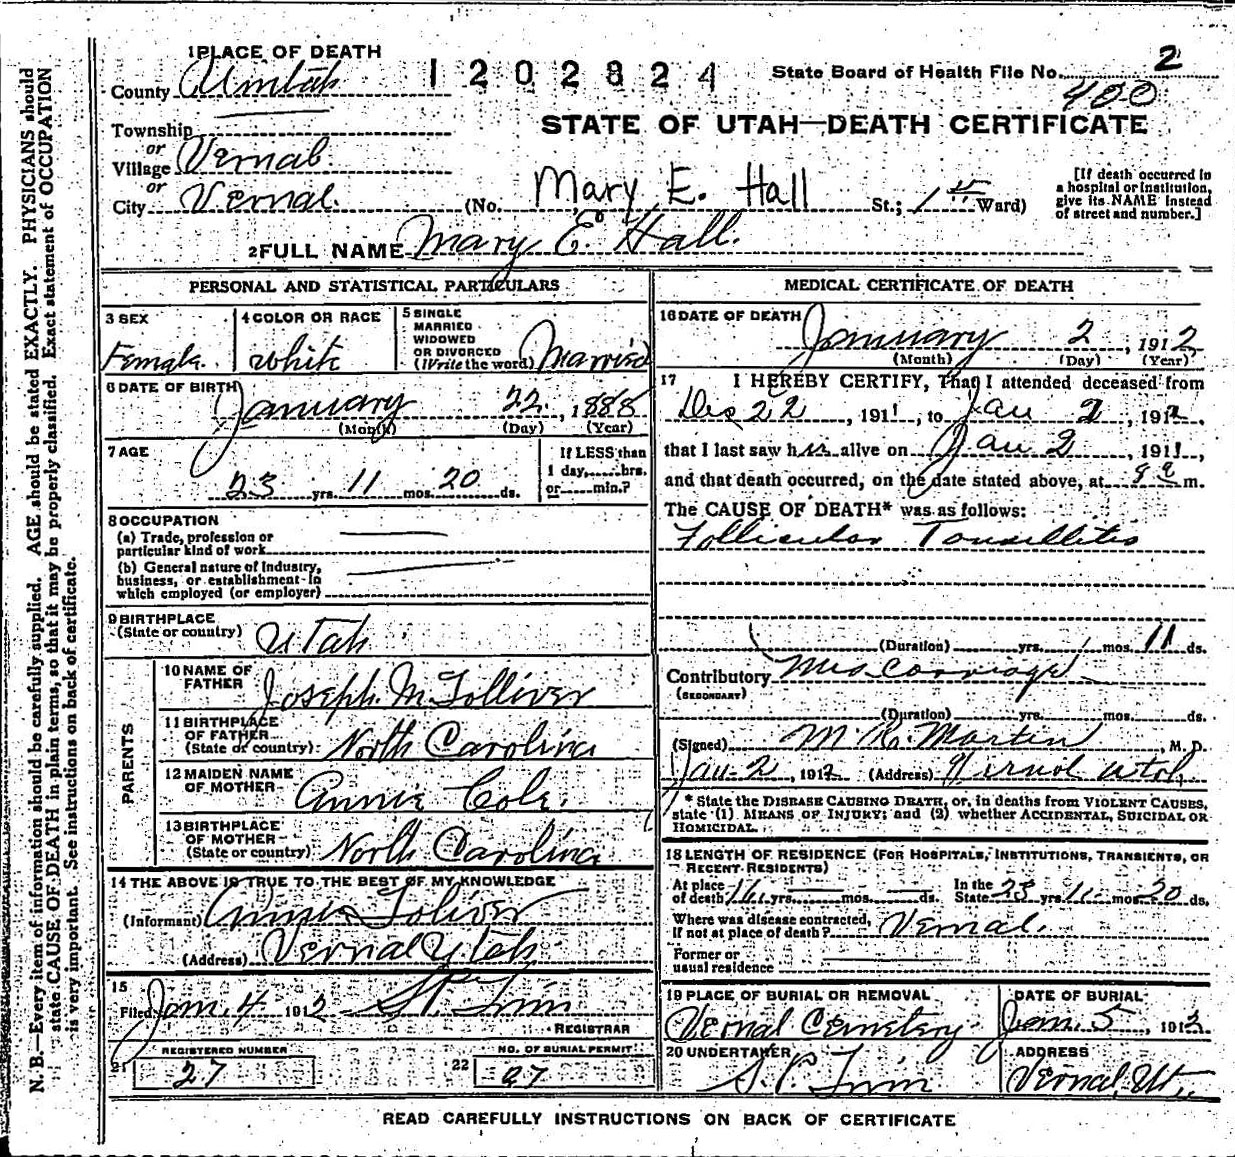 1 PLACE OF DEATH
County Uintah
1202824
State Board of Health File No. 2
400
STATE OF UTAH—DEATH CERTIFICATE
Township
or
Village Vernal
or
City Vernal.
(No. Mary E. Hall St.; 1st Ward)
[If death occurred in a hospital or institution, give its NAME instead of street and number.]
2 FULL NAME Mary E. Hall.
PERSONAL AND STATISTICAL PARTICULARS
3 SEX
Female
4 COLOR OR RACE
White
5 SINGLE
MARRIED
WIDOWED
OR DIVORCED
(Write the word) Married
6 DATE OF BIRTH
January 22, 1888
(Month) (Day) (Year)
7 AGE
23 yrs. 11 mos. 20 ds.
If LESS than
1 day,......hrs.
or......min.?
8 OCCUPATION
(a) Trade, profession or
particular kind of work
(b) General nature of Industry,
business, or establishment in
which employed (or employer)
9 BIRTHPLACE
(State or country) Utah
PARENTS
10 NAME OF
FATHER Joseph M Tolliver
11 BIRTHPLACE
OF FATHER
(State or country) North Carolina
12 MAIDEN NAME
OF MOTHER Annie Cole.
13 BIRTHPLACE
OF MOTHER
(State or country) North Carolina
14 THE ABOVE IS TRUE TO THE BEST OF MY KNOWLEDGE
(Informant) Annie Toliver
(Address) Vernal Utah
15
Filed Jan. 4 1912
REGISTRAR
REGISTERED NUMBER
21 27
NO. OF BURIAL PERMIT
22 27
MEDICAL CERTIFICATE OF DEATH
16 DATE OF DEATH January 2, 1912
(Month) (Day) (Year)
17 I HEREBY CERTIFY, That I attended deceased from
Dec 22, 1911, to Jan 2, 1912,
that I last saw her alive on Jan 2, 1911,
and that death occurred, on the date stated above, at m.
The CAUSE OF DEATH* was as follows:
Follicular Tonsillitis
(Duration) yrs. mos. 11 ds.
Contributory Miscarriage
(SECONDARY)
(Duration) yrs. mos. ds.
(Signed) M K. Martin, M. D.
Jan. 2, 1912 (Address) Vernal Utah
* State the DISEASE CAUSING DEATH, or, in deaths from VIOLENT CAUSES,
state (1) MEANS OF INJURY; and (2) whether ACCIDENTAL, SUICIDAL OR
HOMICIDAL.
18 LENGTH OF RESIDENCE (FOR HOSPITALS, INSTITUTIONS, TRANSIENTS, OR
RECENT RESIDENTS)
At place
of death yrs. mos. ds.
In the
State 23 yrs. 11 mos. 20 ds.
Where was disease contracted,
If not at place of death? Vernal.
Former or
usual residence
19 PLACE OF BURIAL OR REMOVAL
Vernal Cemetery
DATE OF BURIAL
Jan. 5, 1912
20 UNDERTAKER
ADDRESS
Vernal, Ut.
READ CAREFULLY INSTRUCTIONS ON BACK OF CERTIFICATE
N. B.—Every item of information should be carefully supplied. AGE should be stated EXACTLY. PHYSICIANS should
state CAUSE OF DEATH in plain terms, so that it may be properly classified. Exact statement of OCCUPATION
is very important. See instructions on back of certificate.